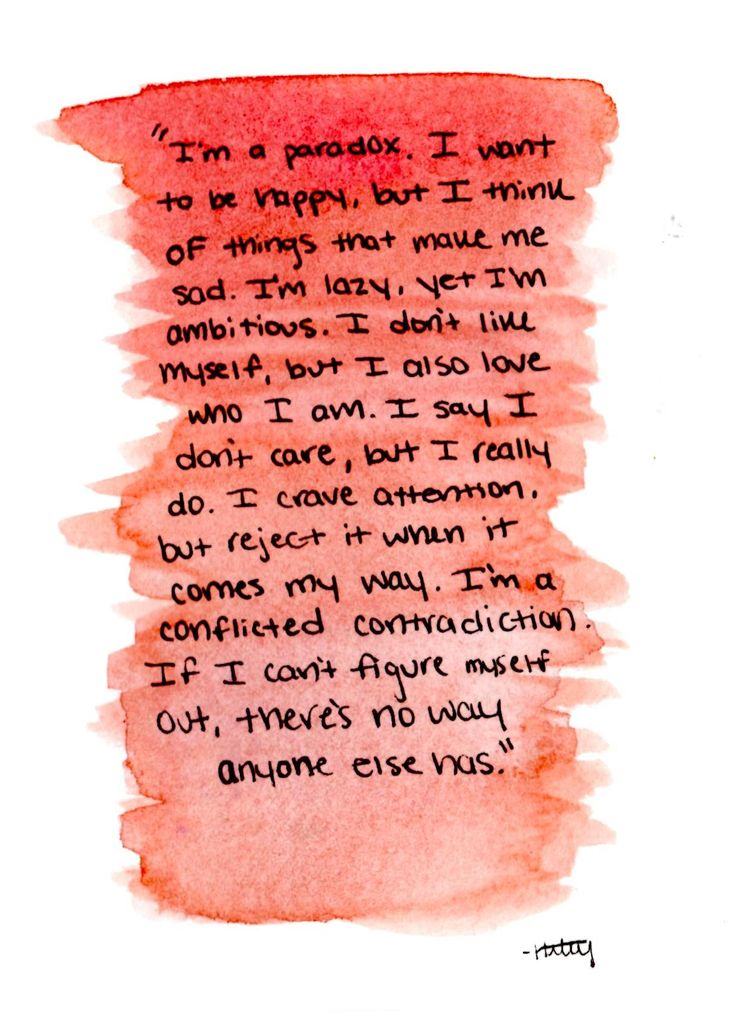 "I'm a paradox. I want
to be happy, but I think
of things that make me
sad. I'm lazy, yet I'm
ambitious. I don't like
myself, but I also love
who I am. I say I
don't care, but I really
do. I crave attention,
but reject it when it
comes my way. I'm a
conflicted contradiction.
If I can't figure myself
out, there's no way
anyone else has."